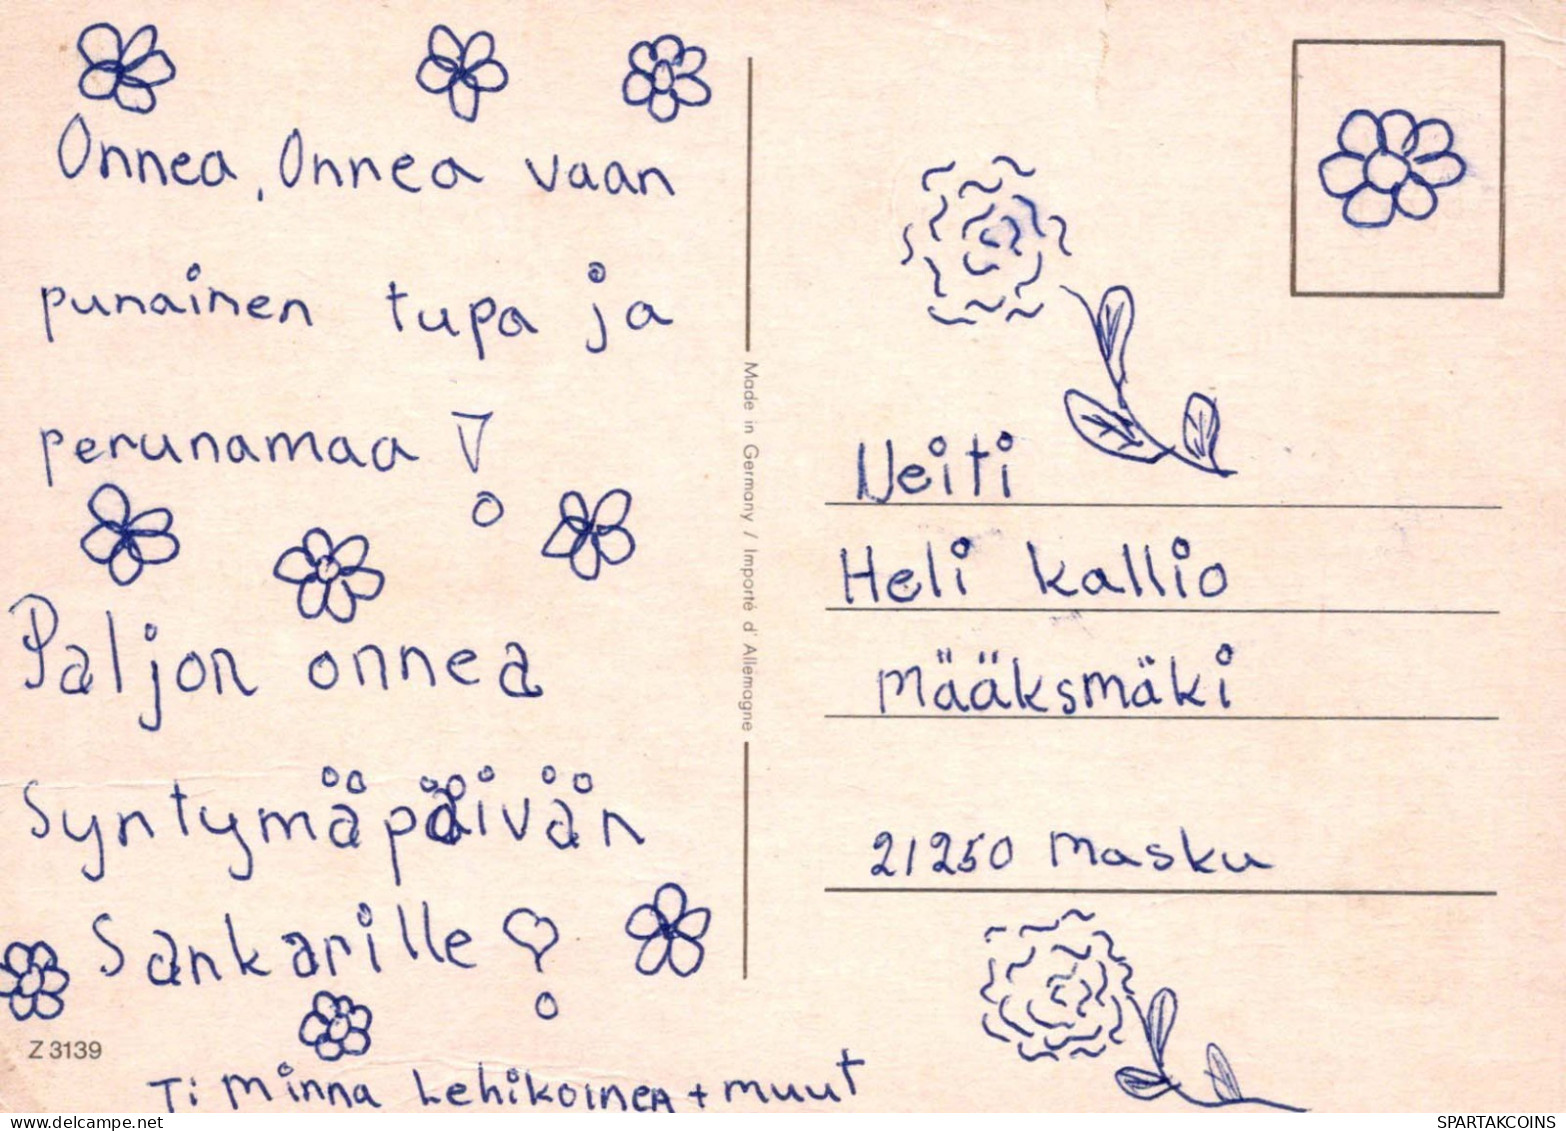 Onnea, Onnea vaan
punainen tupa ja
perunamaa!
Paljon onnea
Syntymäpäivän
Sankarille!
Z 3139
Ti Minna Lehikoinen + muut
Made in Germany / Importé d'Allemagne
Neiti
Heli kallio
Määksmäki
21250 Masku
SPARTAKCOINS